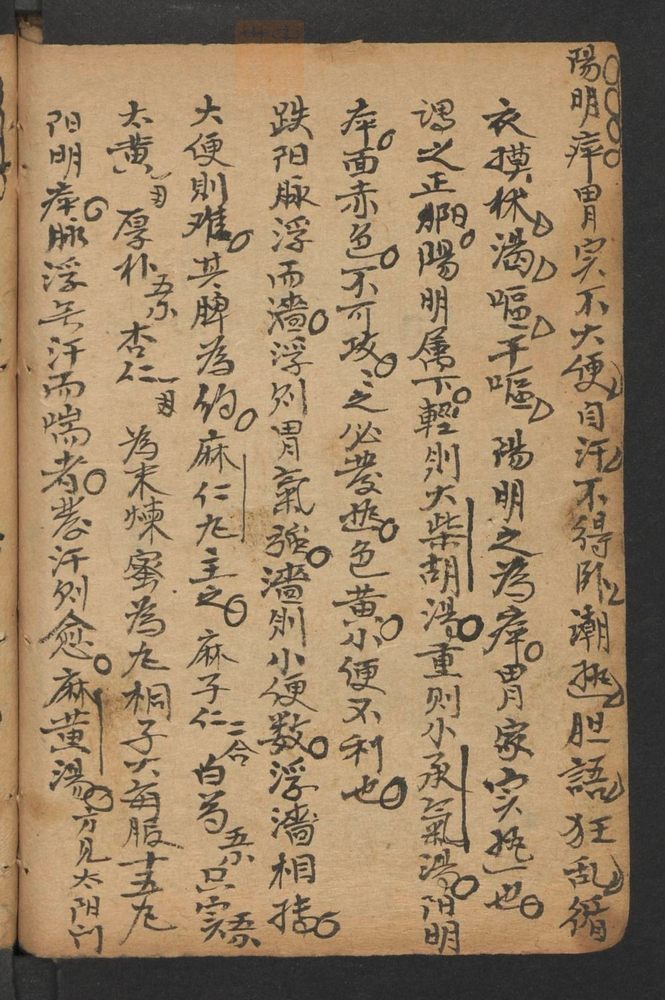 陽明痒胃实不大便自汗不得卧潮热胆語狂乱循
衣摸床渴嘔干嘔陽明之為痒胃家实热也
謂之正阳陽明属下輕則大柴胡湯重则小承氣湯阳明
痒面赤色不可攻之必發热色黄小便不利也
趺阳脉浮而濇浮则胃氣强濇則小便数浮濇相搏
大便則难其脾為约麻仁九主之麻子仁二合白芍五示只实五示
大黄一两厚朴五示杏仁一两為末煉蜜為九桐子大每服十五九
阳明痒脉浮无汗而喘者發汗则愈麻黄湯方见太阳门